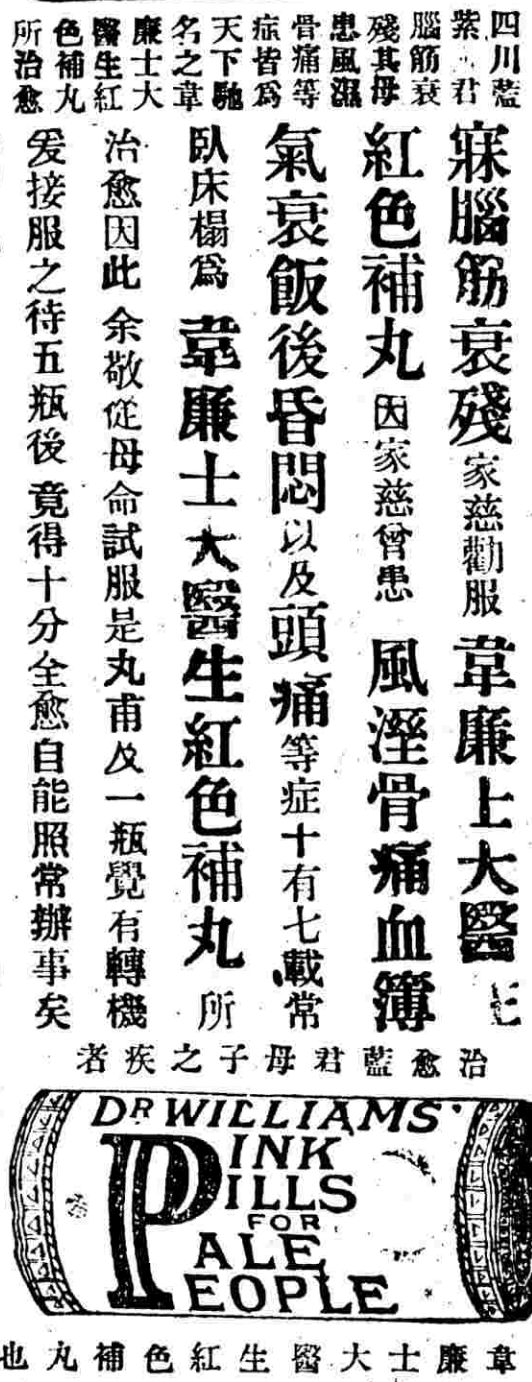 四川藍
紫君
腦筋衰
殘其母
患風濕
骨痛等
症皆爲
天下馳
名之韋
廉士大
醫生紅
色補丸
所治愈
寐腦筋衰殘家慈勸服韋廉上大醫生
紅色補丸因家慈曾患風溼骨痛血簿
氣衰飯後昏悶以及頭痛等症十有七載常
臥床榻爲韋廉士大醫生紅色補丸所
治愈因此余敬從母命試服是丸甫及一瓶覺有轉機
爰接服之待五瓶後竟得十分全愈自能照常辦事矣
治愈藍君母子之疾者
DR WILLIAMS'
PINK
PILLS
FOR
PALE
PEOPLE
韋廉士大醫生紅色補丸也